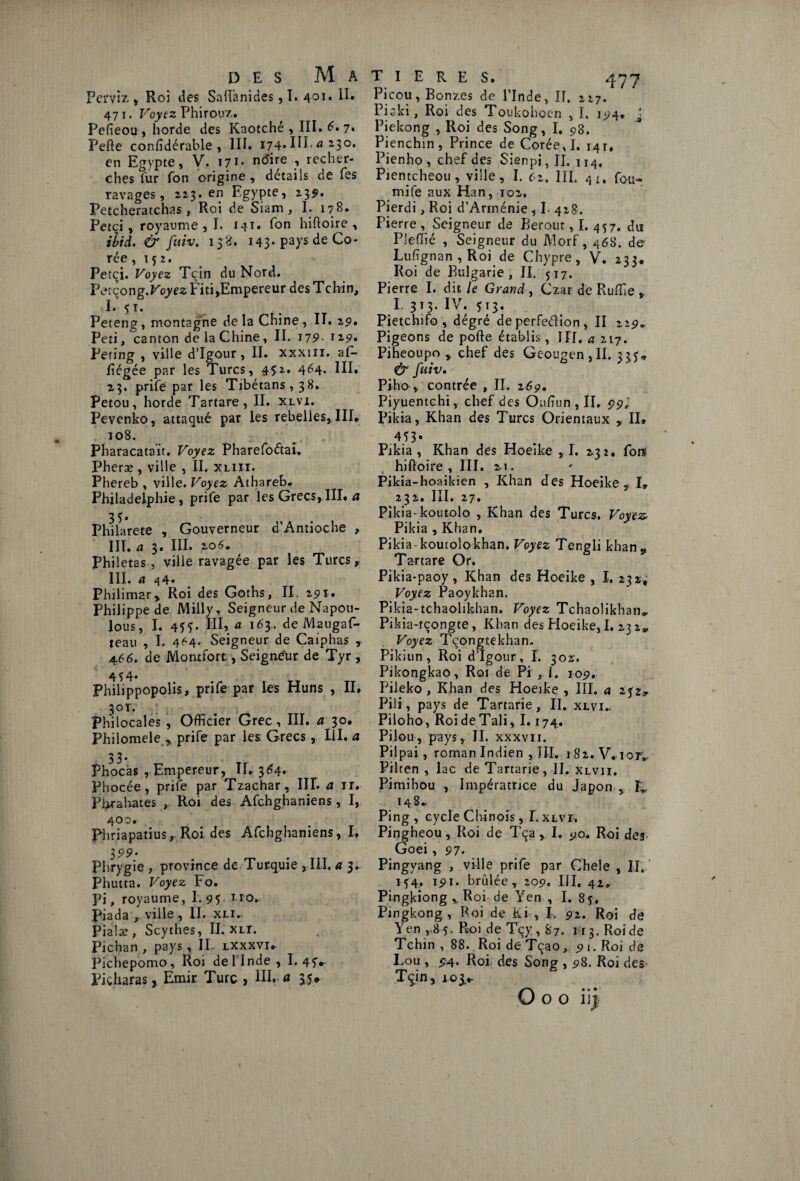 DES MATIERES. 477
Perviz, Roi des Saſſanides, I. 401. II.
471. Voyez Phirouz.
Peſieou, horde des Kaotché, III. 6. 7.
Peſte conſidérable, III. 174. III. a 230.
en Egypte, V. 171. noire, recher-
ches ſur ſon origine, détails de ſes
ravages, 223. en Egypte, 239.
Petcheratchas, Roi de Siam, I. 178.
Petçi, royaume, I. 141. ſon hiſtoire,
ibid. & ſuiv. 138. 143. pays de Co-
rée, 152.
Petçi. Voyez Tçin du Nord.
Petçong. Voyez Fiti, Empereur des Tchin,
I. 51.
Peteng, montagne de la Chine, II. 29.
Peti, canton de la Chine, II. 179. 129.
Peting, ville d'Igour, II. XXXIII. aſ-
ſiégée par les Turcs, 452. 464. III.
23. priſe par les Tibétans, 38.
Petou, horde Tartare, II. XLVI.
Pevenko, attaqué par les rebelles, III.
108.
Pharacataït. Voyez Pharefoctaï.
Pheræ, ville, II. XLIII.
Phereb, ville. Voyez Athareb.
Philadelphie, priſe par les Grecs, III. a
35.
Philarete, Gouverneur d'Antioche,
III. a 3. III. 206.
Philetas, ville ravagée par les Turcs,
III. a 44.
Philimar, Roi des Goths, II. 291.
Philippe de Milly, Seigneur de Napou-
lous, I. 455. III, a 163. de Maugaſ-
teau, I. 464. Seigneur de Caiphas,
466. de Montfort, Seigneur de Tyr,
454.
Philippopolis, priſe par les Huns, II.
301.
Philocales, Officier Grec, III. a 30.
Philomele, priſe par les Grecs, III. a
33.
Phocas, Empereur, II. 364.
Phocée, priſe par Tzachar, III. a 11.
Phrahates, Roi des Afchghaniens, I,
400.
Phriapatius, Roi des Afchghaniens, I.
399.
Phrygie, province de Turquie, III. a 3.
Phutta. Voyez Fo.
Pi, royaume, I. 95. 110.
Piada, ville, II. XLI.
Pialæ, Scythes, II. XLI.
Pichan, pays, II. LXXXVI.
Pichepomo, Roi de l'Inde, I. 45.
Picharas, Emir Turc, III. a 35.
Picou, Bonzes de l'Inde, II. 227.
Pieki, Roi des Toukohoen, I. 194.
Piekong, Roi des Song, I. 98.
Pienchin, Prince de Corée, I. 141.
Pienho, chef des Sienpi, II. 114.
Pientcheou, ville, I. 62. III. 41. ſou-
miſe aux Han, 102.
Pierdi, Roi d'Arménie, I. 428.
Pierre, Seigneur de Berout, I. 457. du
Pleſſié, Seigneur du Morf, 468. de
Luſignan, Roi de Chypre, V. 233.
Roi de Bulgarie, II. 517.
Pierre I. dit le Grand, Czar de Ruſſie,
I. 313. IV. 513.
Pietchiſo, dégré de perfection, II 229.
Pigeons de poſte établis, III. a 217.
Piheoupo, chef des Geougen, II. 335.
& ſuiv.
Piho, contrée, II. 269.
Piyuentchi, chef des Ouſiun, II. 99.
Pikia, Khan des Turcs Orientaux, II.
453.
Pikia, Khan des Hoeike, I. 232. ſon
hiſtoire, III. 21.
Pikia-hoaikien, Khan des Hoeike, I.
232. III. 27.
Pikia-koutolo, Khan des Turcs. Voyez
Pikia, Khan.
Pikia-koutolokhan. Voyez Tengli khan,
Tartare Or.
Pikia-paoy, Khan des Hoeike, I. 232.
Voyez Paoykhan.
Pikia-tchaolikhan. Voyez Tchaolikhan.
Pikia-tçongte, Khan des Hoeike, I. 232.
Voyez Tçongtekhan.
Pikiun, Roi d'Igour, I. 302.
Pikongkao, Roi de Pi, I. 109.
Pileko, Khan des Hoeike, III. a 252.
Pili, pays de Tartarie, II. XLVI.
Piloho, Roi de Tali, I. 174.
Pilou, pays, II. XXXVII.
Pilpai, roman Indien, III. 182. V. 101.
Pilten, lac de Tartarie, II. XLVII.
Pimihou, Impératrice du Japon, I.
148.
Ping, cycle Chinois, I. XLVI.
Pingheou, Roi de Tça, I. 90. Roi des
Goei, 97.
Pingyang, ville priſe par Chele, II.
154. 191. brûlée, 209. III. 42.
Pingkiong, Roi de Yen, I. 85.
Pingkong, Roi de Ki, I. 92. Roi de
Yen, 85. Roi de Tçy, 87. 113. Roi de
Tchin, 88. Roi de Tçao, 91. Roi de
Lou, 94. Roi des Song, 98. Roi des
Tçin, 103.
Ooo iij